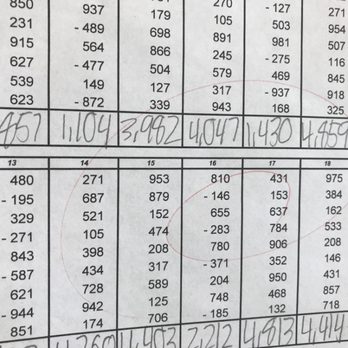 850 270 -127 271
231 937 179 105 503 954
915 -489 698 891 981 507
627 564 866 245 -275 116
539 -477 504 579 469 845
623 149 127 317 -937 918
-872 339 943 168 325
857 1,104 3,982 4,047 1,430 4,859
13 14 15 16 17 18
480 271 953 810 431 975
-195 687 879 -146 153 384
329 521 152 655 637 162
-271 105 474 -283 784 533
843 398 208 780 906 208
-587 434 317 -371 352 146
621 728 589 204 950 431
-944 942 125 748 468 857
851 174 706 -185 132 718
4,260 4,403 2,212 4,813 4,414